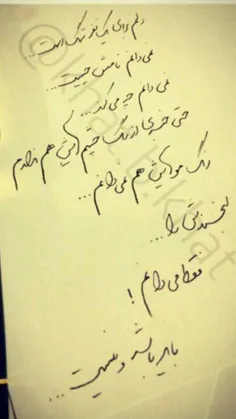 دلم برای یک نفر تنگ است...
نمی دانم نامش چیست...
نمی دانم چه می کند...
حتی خبری از رنگ چشم هایش هم ندارم
رنگ موهایش هم نمی دانم...
لبخندش را...
فقط می دانم !
باید باشد و نیست...